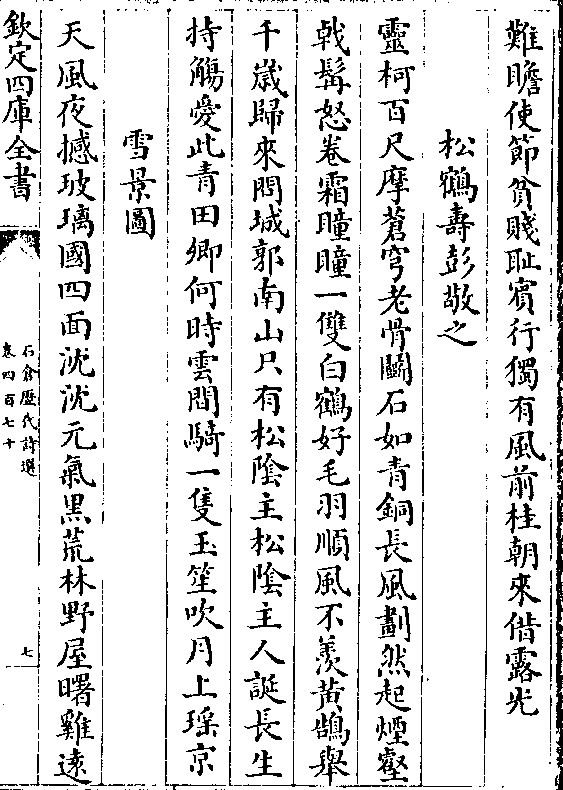 難瞻使節貧賤耻賓行獨有風前桂朝來借露光
松鶴壽彭敬之
靈柯百尺摩蒼穹老骨鬭石如青銅長風劃然起煙壑
戟髯怒卷霜瞳瞳一雙白鶴好毛羽順風不羨黃鵠舉
千歲歸來悶城郭南山只有松陰主松陰主人誕長生
持觴愛此青田卿何時雲間騎一隻玉笙吹月上瑤京
雪景圖
天風夜撼玻璃國四面沈沈元氣黒荒林野屋曙雞遠
欽定四庫全書
石倉歷代詩選
卷四百七十
七